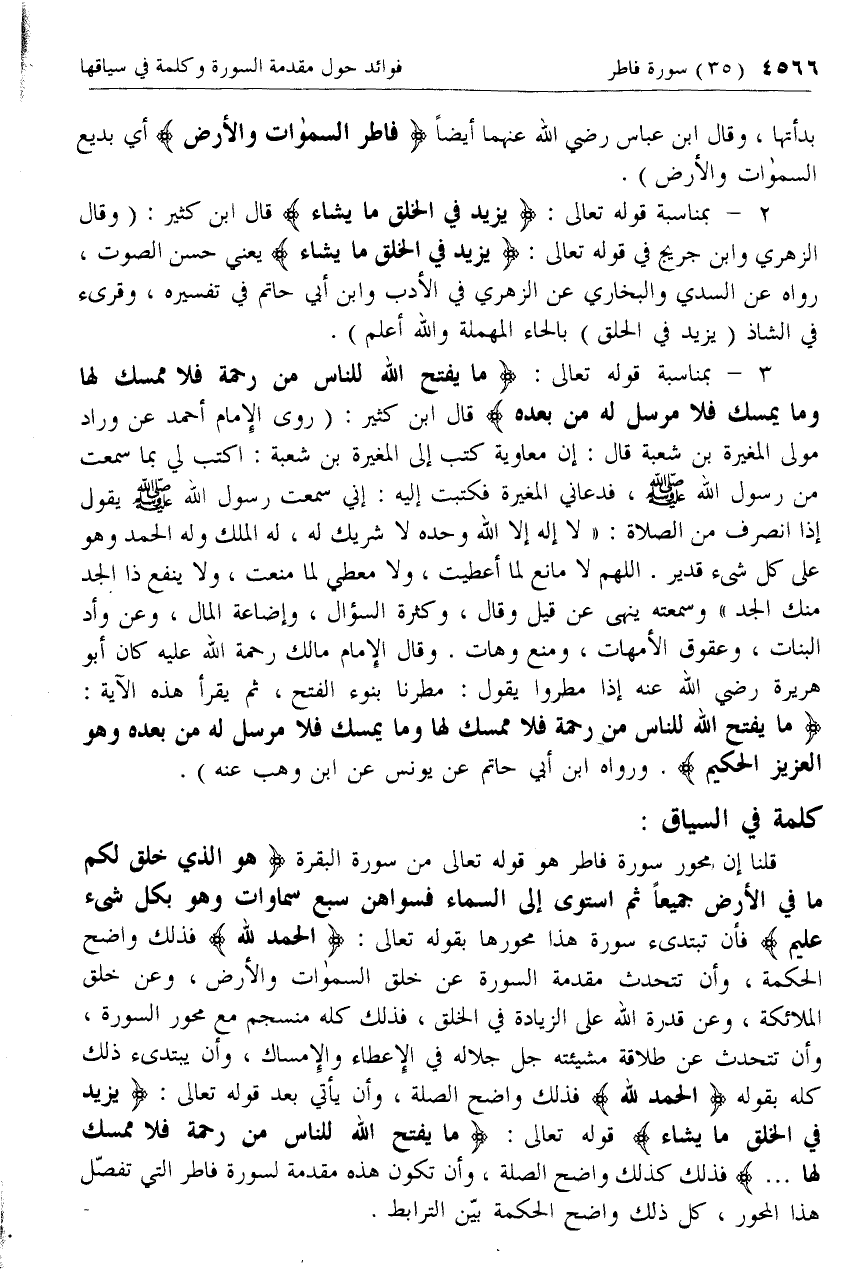 ٤٥٦٦ (٣٥) سورة فاطر فوائد حول مقدمة السورة وكلمة في سياقها
بدأتها ، وقال ابن عباس رضي الله عنهما أيضاً ﴿ فاطر السمٰوات والأرض ﴾ أي بديع
السمٰوات والأرض ) .
٢ - بمناسبة قوله تعالى : ﴿ يزيد في الخلق ما يشاء ﴾ قال ابن كثير : ( وقال
الزهري وابن جريج في قوله تعالى : ﴿ يزيد في الخلق ما يشاء ﴾ يعني حسن الصوت ،
رواه عن السدي والبخاري عن الزهري في الأدب وابن أبي حاتم في تفسيره ، وقرىء
في الشاذ ( يزيد في الحلق ) بالحاء المهملة والله أعلم ) .
٣ - بمناسبة قوله تعالى : ﴿ ما يفتح الله للناس من رحمة فلا ممسك لها
وما يمسك فلا مرسل له من بعده ﴾ قال ابن كثير : ( روى الإمام أحمد عن وراد
مولى المغيرة بن شعبة قال : إن معاوية كتب إلى المغيرة بن شعبة : اكتب لي بما سمعت
من رسول الله ﷺ ، فدعاني المغيرة فكتبت إليه : إني سمعت رسول الله ﷺ يقول
إذا انصرف من الصلاة : « لا إله إلا الله وحده لا شريك له ، له الملك وله الحمد وهو
على كل شىء قدير . اللهم لا مانع لما أعطيت ، ولا معطي لما منعت ، ولا ينفع ذا الجد
منك الجد » وسمعته ينهى عن قيل وقال ، وكثرة السؤال ، وإضاعة المال ، وعن وأد
البنات ، وعقوق الأمهات ، ومنع وهات . وقال الإمام مالك رحمة الله عليه كان أبو
هريرة رضي الله عنه إذا مطروا يقول : مطرنا بنوء الفتح ، ثم يقرأ هذه الآية :
﴿ ما يفتح الله للناس من رحمة فلا ممسك لها وما يمسك فلا مرسل له من بعده وهو
العزيز الحكيم ﴾ . ورواه ابن أبي حاتم عن يونس عن ابن وهب عنه ) .
كلمة في السياق :
قلنا إن محور سورة فاطر هو قوله تعالى من سورة البقرة ﴿ هو الذي خلق لكم
ما في الأرض جميعاً ثم استوى إلى السماء فسواهن سبع سماوات وهو بكل شىء
عليم ﴾ فأن تبتدىء سورة هذا محورها بقوله تعالى : ﴿ الحمد لله ﴾ فذلك واضح
الحكمة ، وأن تتحدث مقدمة السورة عن خلق السمٰوات والأرض ، وعن خلق
الملائكة ، وعن قدرة الله على الزيادة في الخلق ، فذلك كله منسجم مع محور السورة ،
وأن تتحدث عن طلاقة مشيئته جل جلاله في الإعطاء والإمساك ، وأن يبتدىء ذلك
كله بقوله ﴿ الحمد لله ﴾ فذلك واضح الصلة ، وأن يأتي بعد قوله تعالى : ﴿ يزيد
في الخلق ما يشاء ﴾ قوله تعالى : ﴿ ما يفتح الله للناس من رحمة فلا ممسك
لها ... ﴾ فذلك كذلك واضح الصلة ، وأن تكون هذه مقدمة لسورة فاطر التي تفصّل
هذا المحور ، كل ذلك واضح الحكمة بيّن الترابط .